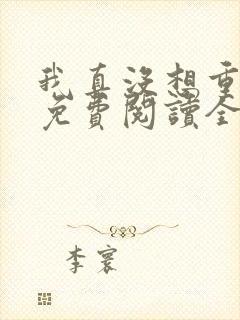 我真没想重
免費閱讀全
李寰